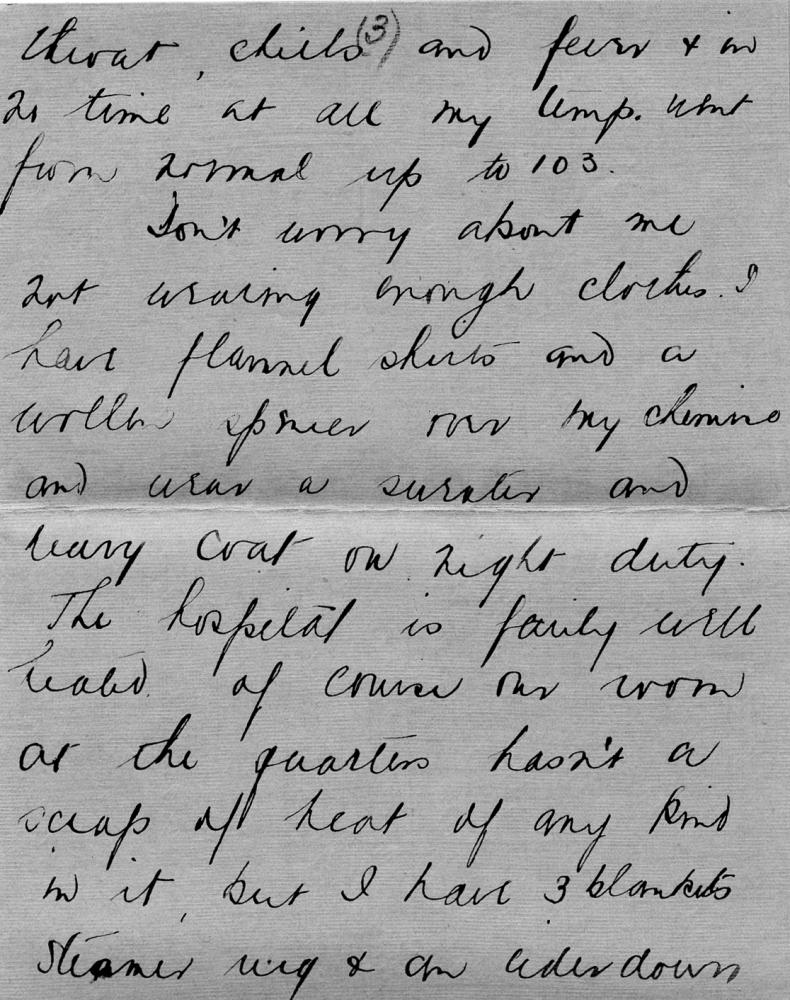 (3)
throat, chills and fever & in
no time at all my temp. went
from normal up to 103.
Don't worry about me
not wearing enough clothes. I
have flannel shirts and a
wollen spencer over my chemise
and wear a sweater and
heavy coat on night duty.
The hospital is fairly well
heated. of course our room
at the quarters hasn't a
scrap of heat of any kind
in it, but I have 3 blankets
steamer rug & an eiderdown